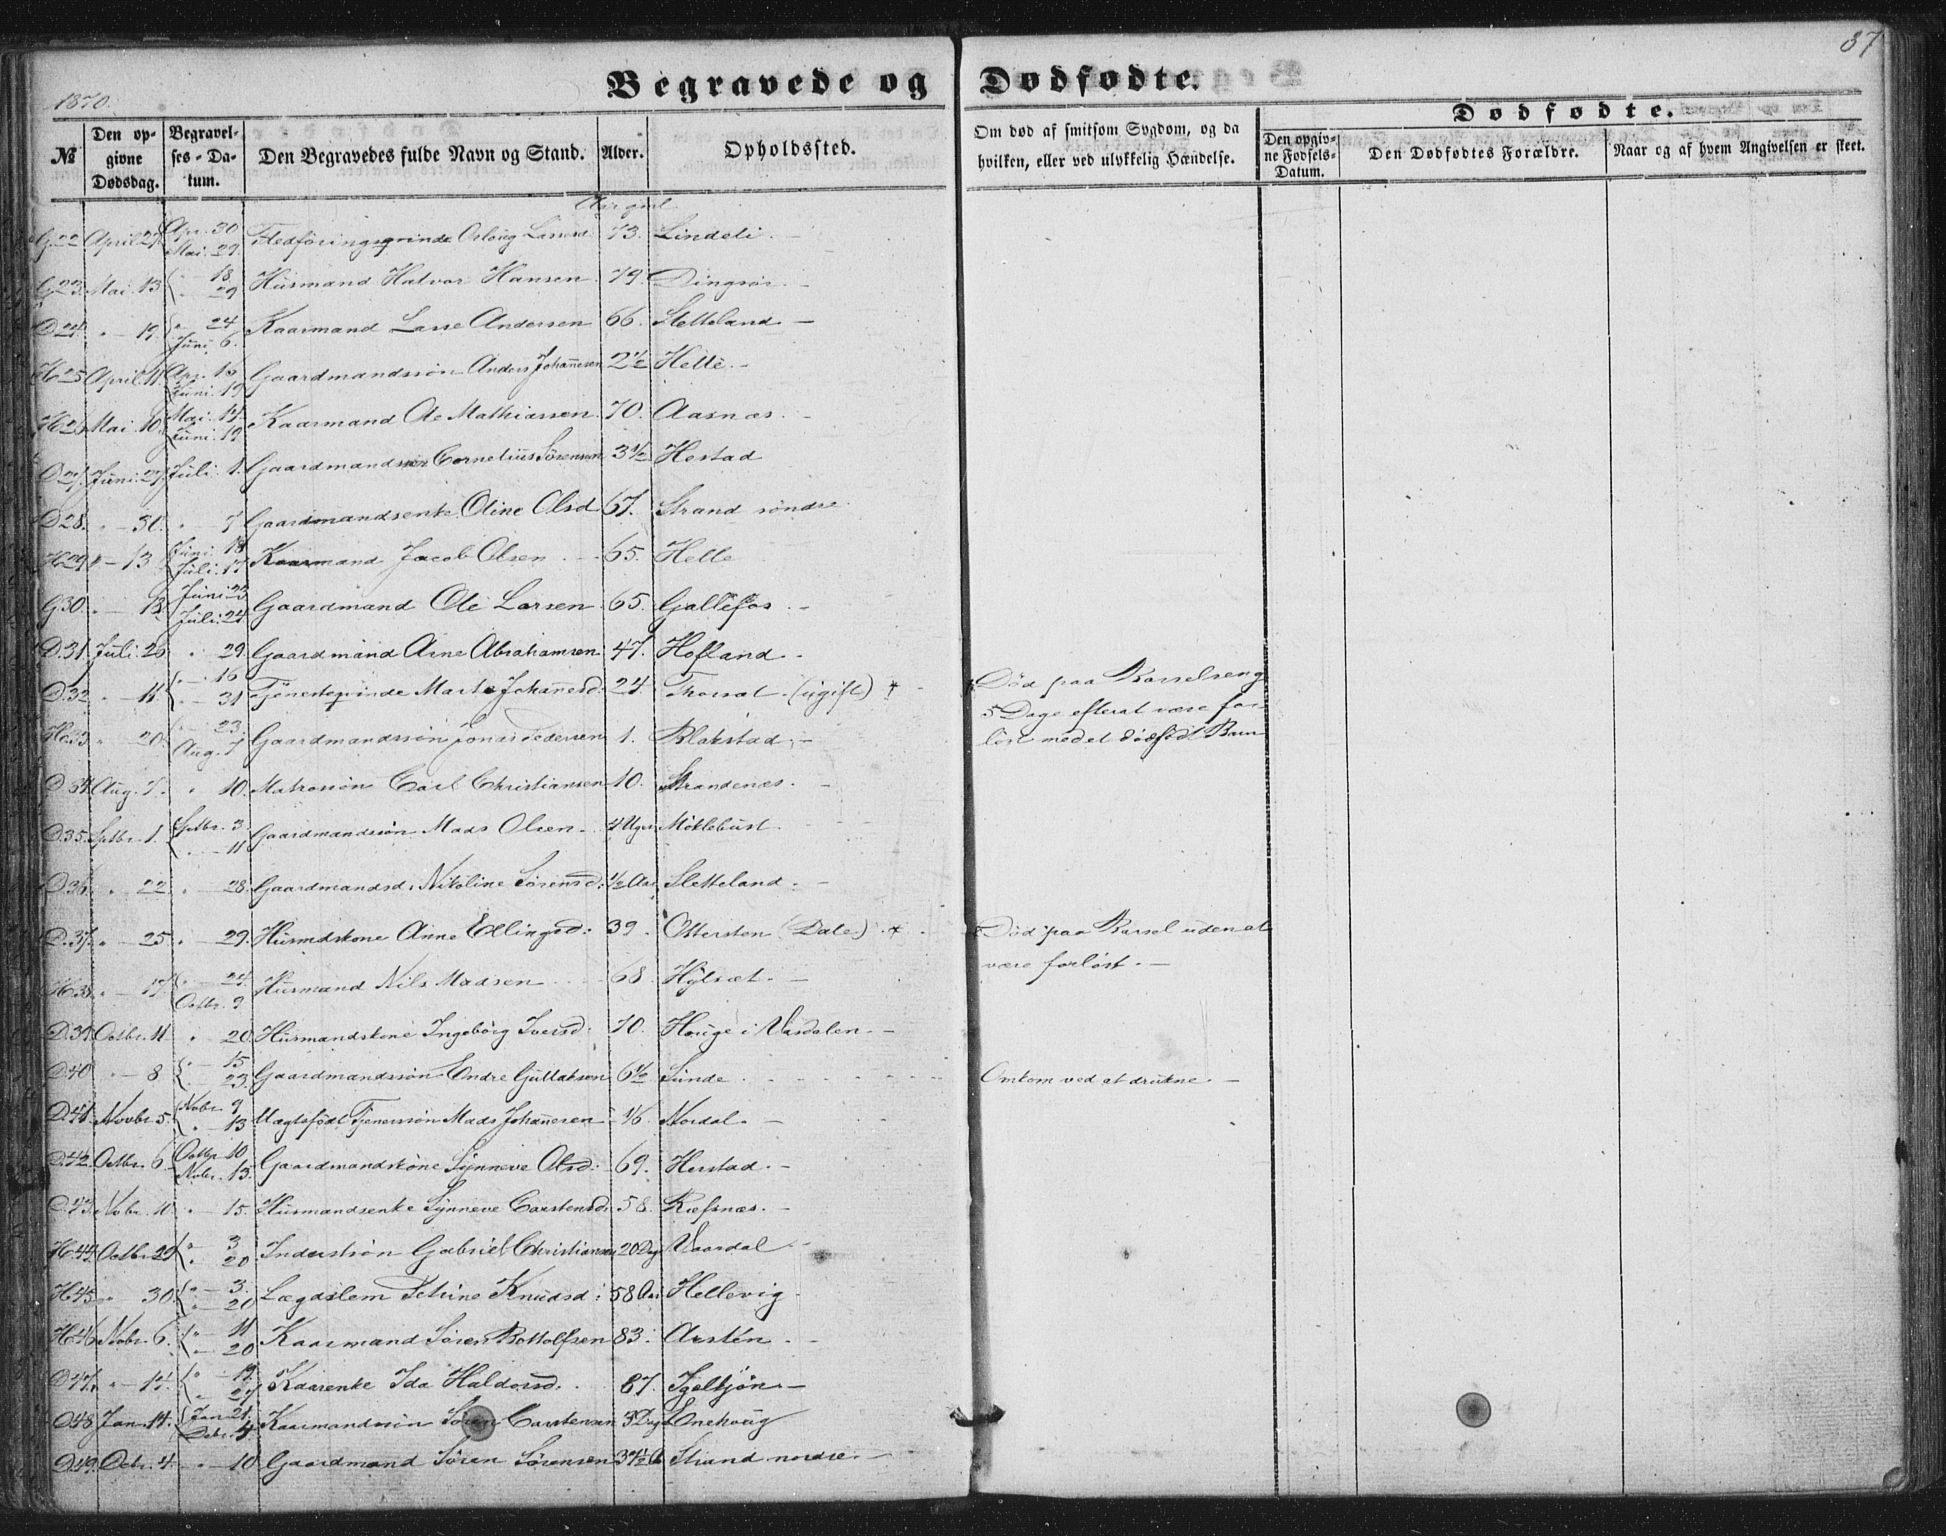 87
1870.
Begravede og Dødfødte.
№
Den opgivne Dødsdag.
Begravelses-Datum.
Den Begravedes fulde Navn og Stand.
Alder.
Opholdssted.
Om død af smitsom Sygdom, og da hvilken, eller ved ulykkelig Hændelse.
Dødfødte.
Den opgivne Fødsels-Datum.
Den Dødfødtes Forældre.
Naar og af hvem Angivelsen er skeet.
G.22 April 27 Apr. 30 Mai. 29 Larsd 73. Lindeli.
G.23. Mai. 13 " — 18 — 29 Huusmand Halvor Hansen 79. Dingsør.
D.24. " — 19. " 24 Juni. 6. Kaarmand Lasse Andersen 66. Sletteland
H.25 April. 11. Apr. 16 Juni. 19 Gaardmandssøn Anders Johannesen 2½ Helle.
H.26 Mai. 10. Mai. 14. Juni. 19 Kaarmand Ole Mathiassen 70. Aasnæs
D.27. Juni. 27. Juli. 1. Gaardmandssøn Cornelius Sørensen 3½ Hestad
D.28. " — 30. " 7 Gaardmandsenke Oline Olsd 67. Strand søndre
H.29 " — 13 Juni. 18 Juli. 17 Kaarmand Jacob Olsen 65. Helle
G.30. " — 18 Juni. 23 Juli. 24 Gaardmand Ole Larsen 65. Gallefos
D.31. Juli. 26 " 29. Gaardmand Arne Abrahamsen 47. Hofland
D.32 " — 11. " — 16 — 31 Tjenestepige Marte Johannesd. 24. (ugift) * Død paa Barselseng
5 Dage efterat være for-
løst med et dødfødt Barn
H.33 " 20. — 23. Aug. 7 Gaardmandssøn Jonas Pedersen 1. Blakstad
D.34. Aug. 7. " 10. Matrossøn Carl Christiansen 10. Strandenæs.
D.35. Septbr. 1. Septbr. 3. — 11 Gaardmandssøn Mads Olsen 4 Uger Møklebust
D.36. " — 22 " — 28. Gaardmandsd. Nikoline Sørensd. ½ Aar Sletteland
D.37. " — 25 " — 29. Husmdskone Anne Ellingsd: 39. Ottersten (Dale) * Død paa Barsel uden at
være forløst.
H.38. " — 17. " — 24. Octbr. 9 Husmand Nils Madsen 68 Hylsæt.
D.39. Octbr. 11 " 20. Husmandskone Ingeborg Iversd: 70. Houge i Vardalen.
D.40 " — 8 " — 15 — 23. Gaardmandssøn Endre Guttaksen 6½ Sunde Omkom ved at drukne.
D.41. Novbr. 5. Nobr. 9 — 13 Uægtefødt Tjenerssøn Mads Johannesen 1/6 Nordal.
D.42. Octbr. 6 Octbr. 10 Nobr. 13. Gaardmandskone Synneve Olsd: 69. Herstad.
D.43. Nobr. 10. " — 15. Husmandsenke Synneve Carstensd. 58. Ræfsnæs.
H.44. Octbr. 29 " — 3 " 20 Inderstsøn Gabriel Christiansen 20 Dage Vaardal
H.45 " 30. " — 3. — 20 Lægdslem Petrine Knudsd: 58 Aar Hellevig
H.46 Nobr. 6. " — 11 — 20 Kaarmand Søren Bottolfsen 83. Aarsten
D.47. " — 14. " — 19. " 27 Kaarenke Ida Haldorsd. 87. Igeltjøn
D.48 Jan. 14. Jan. 21. Debr. 4 Kaarmandssøn Søren Carstensen Lonehoug
D.49. Debr. 4. " — 10 Gaardmand Søren Sørensen 37½ A Strand nordre